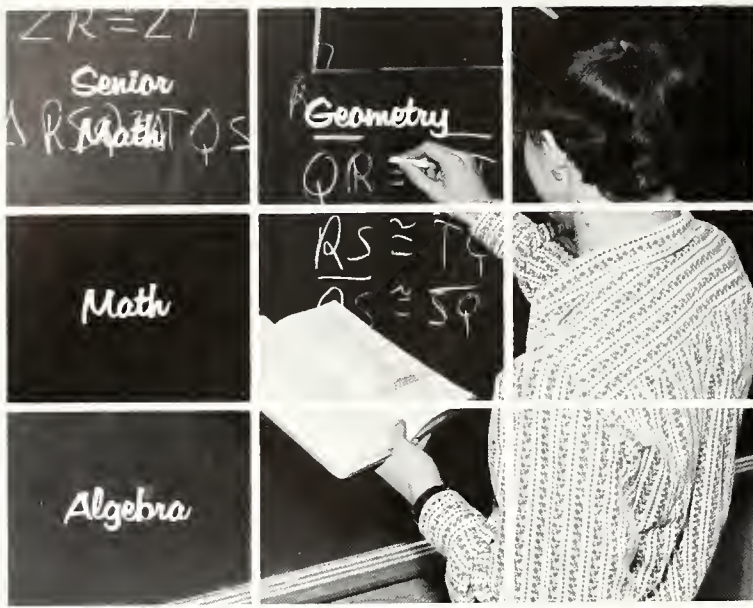 ∠R ≅ ∠T
Senior
Math
Δ RSQ ≅ TQS
R
Geometry
QR ≅ T
RS ≅ TQ
QS ≅ SQ
Math
Algebra